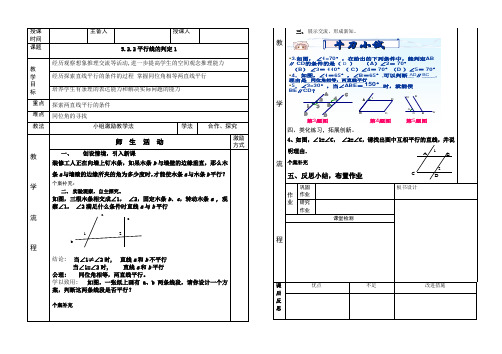 授课时间
主备人
授课人
课题
5.2.2平行线的判定1
教学目标
经历观察想象推理交流等活动,进一步提高学生的空间观念推理能力
经历探索直线平行的条件的过程 掌握同位角相等两直线平行
培养学生有条理的表达能力和解决实际问题的能力
重点
探索两直线平行的条件
难点
同位角的寻找
教法
小组激励教学法
学法
合作、探究
师 生 活 动
激励方式
教
学
流
程
一、 创设情境,引入新课
装修工人正在向墙上钉木条,如果木条b与墙壁的边缘垂直,那么木条a与墙壁的边缘所夹的角为多少度时,才能使木条a与木条b平行?
个案补充:
二、实验观察,自主探究。
如图,三根木条相交成∠1, ∠2,固定木条b、c,转动木条a , 观察∠1, ∠2满足什么条件时直线a与b平行
结论: 当∠1≠∠2时, 直线a和b不平行
当∠1=∠2时, 直线a和b平行
公理: 同位角相等,两直线平行。
学以致用: 如图,一张纸上画有a、b两条线段,请你设计一个方案,判断这两条线段是否平行?
a
b
个案补充
教
学
流
程
三、 展示交流,形成新知。
牛刀小试
四、类化练习,拓展创新。
4、如图,∠1=∠C, ∠2=∠C,请找出图中互相平行的直线,并说明理由.
个案补充
五、反思小结,布置作业
作业
巩固作业
研究作业
板书设计
课堂检测
课后反思
优点
不足
改进措施